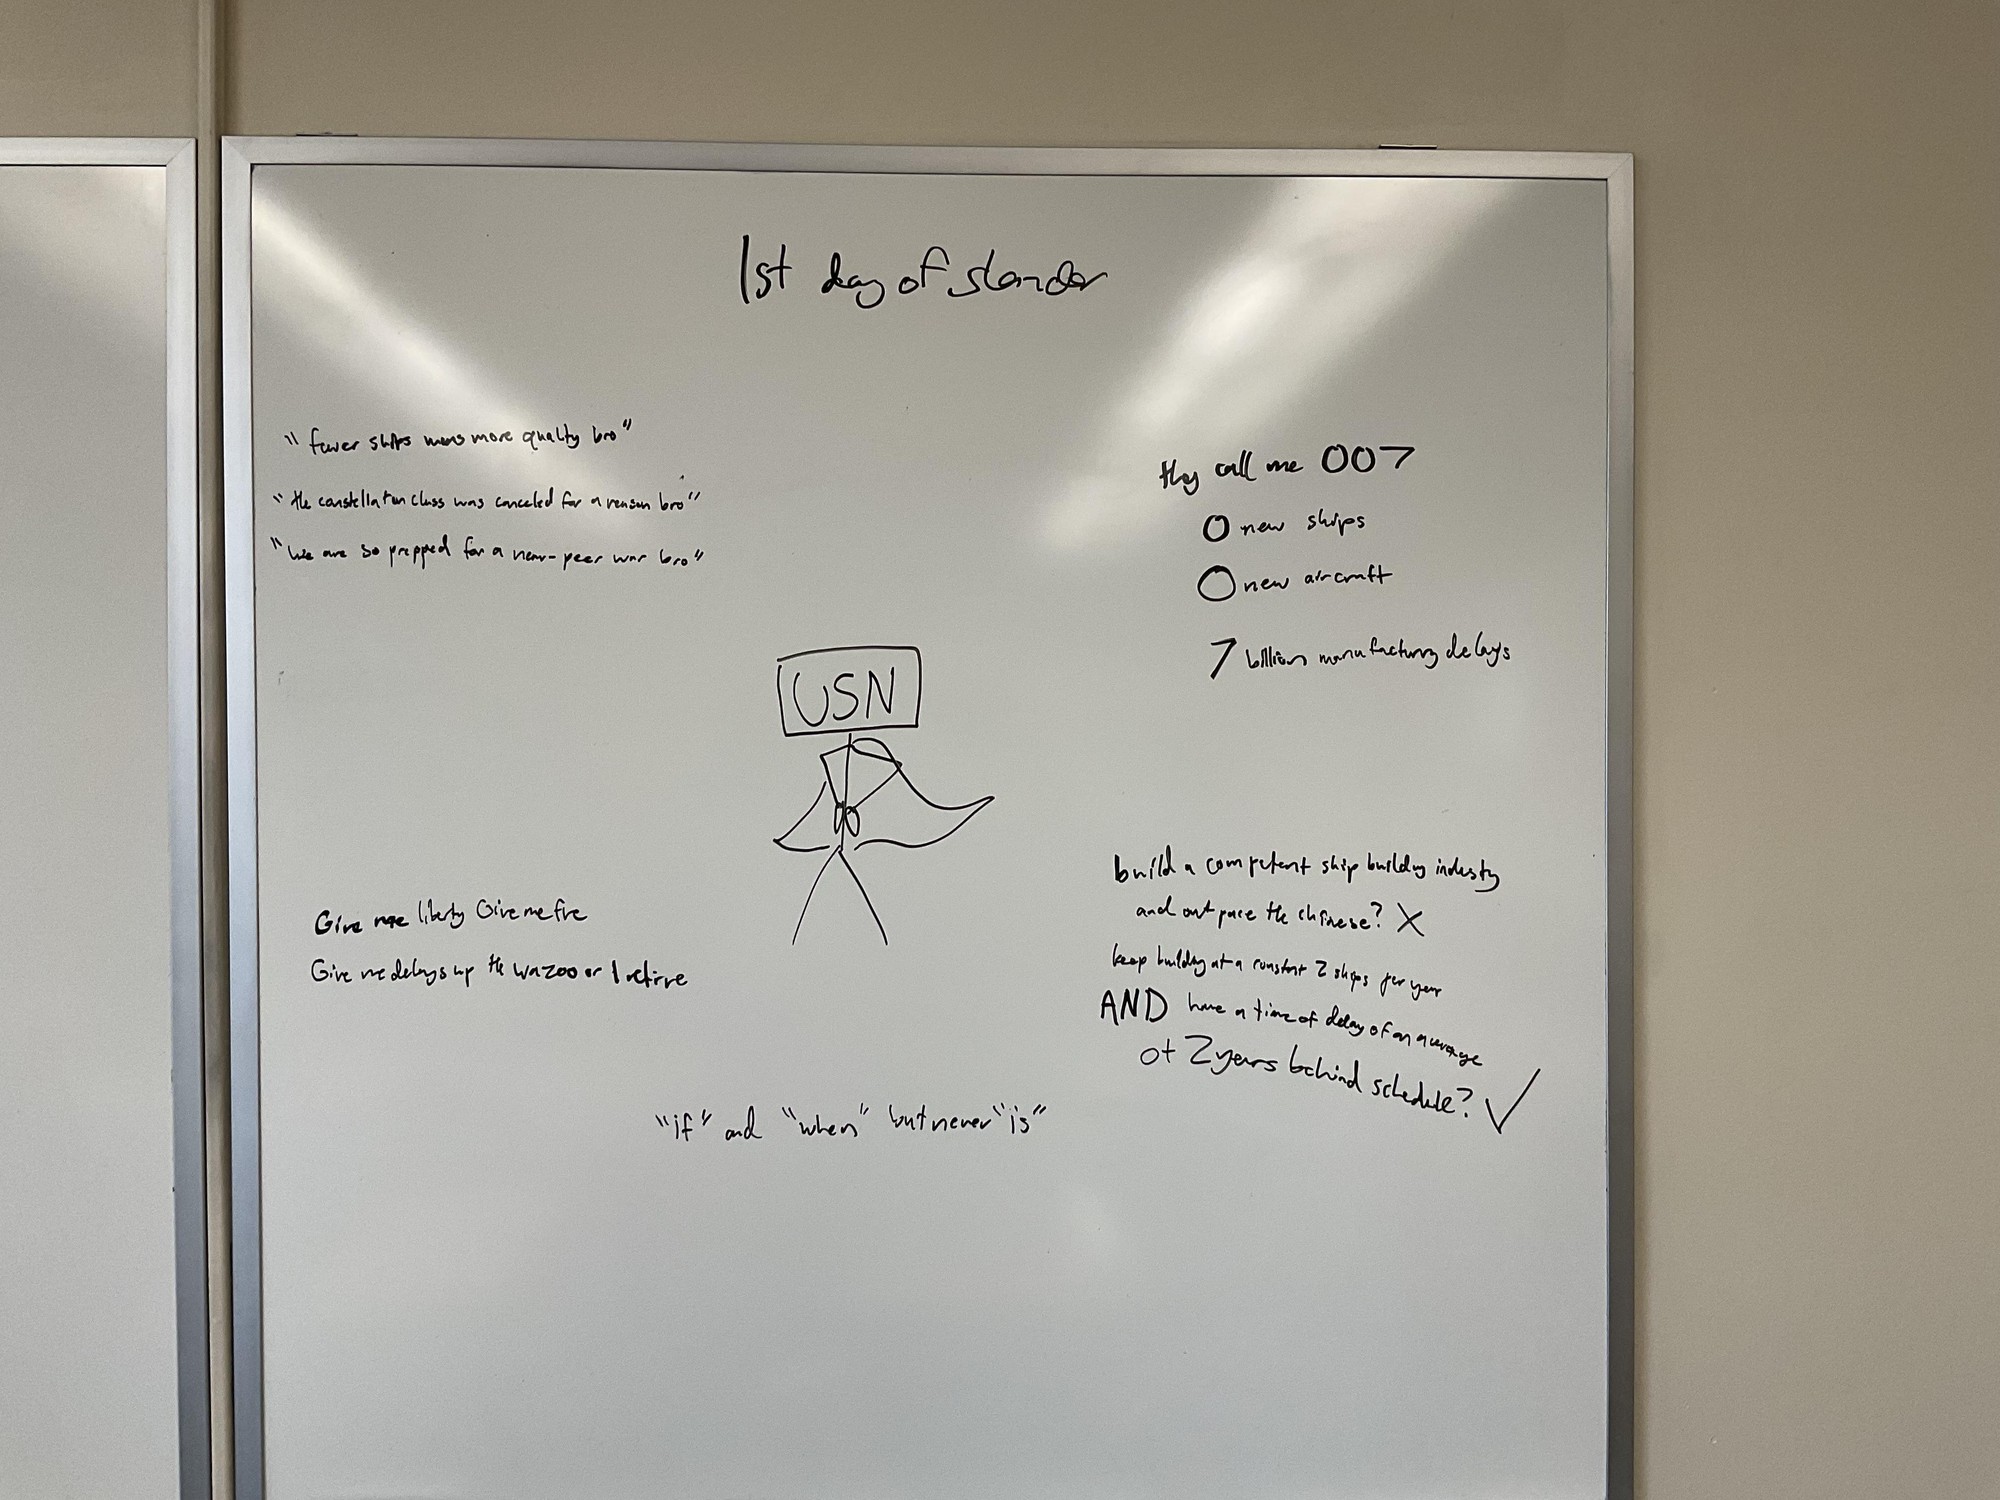 1st day of slander
"fewer ships means more quality bro"
"the constellation class was canceled for a reason bro"
"We are so prepped for a near-peer war bro"
they call me 007
0 new ships
0 new aircraft
7 billion manufacturing delays
USN
Give me liberty Give me fire
Give me delays up the wazoo or I retire
build a competent ship building industry
and out pace the chinese? X
keep building at a constant 2 ships per year
AND have a time of delay of on average
of 2 years behind schedule? ✓
"if" and "when" but never "is"